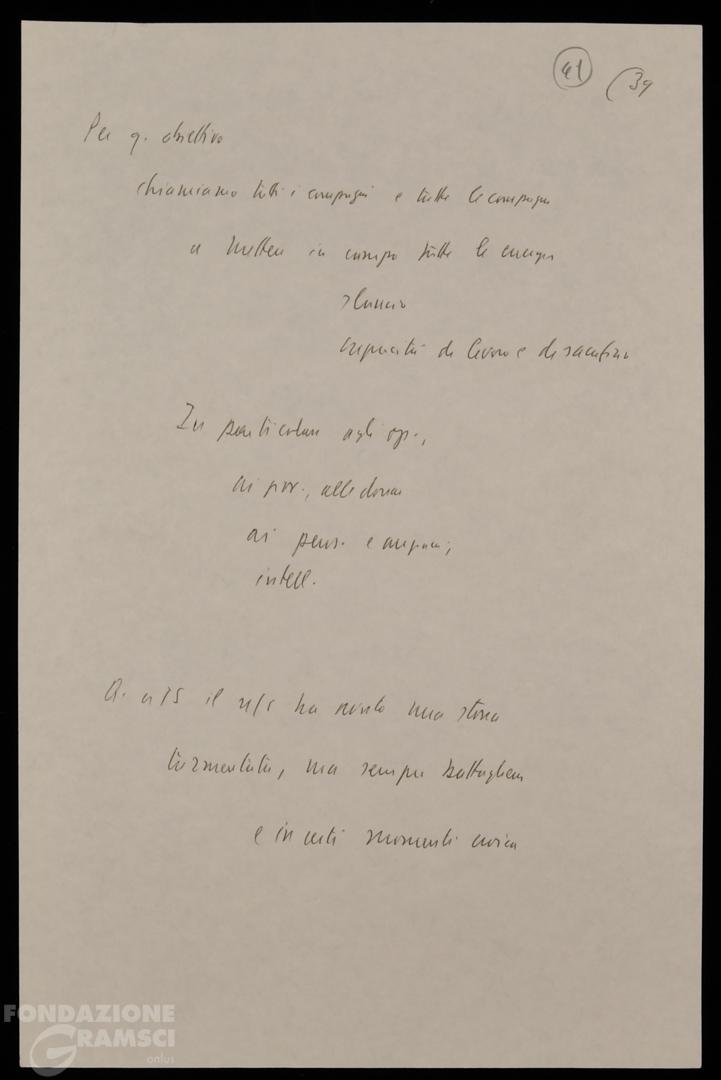 41 (39
Per q. obiettivo
chiamiamo tutti i compagni e tutte le compagne
a mettere in campo tutte le energie
slancio
capacità di lavoro e di sacrificio
In particolare agli op.,
ai giov., alle donne
ai pens. e anziani,
intell.
A. il ns/ ha avuto una storia
tormentata, ma sempre battagliera
e in certi momenti eroica
FONDAZIONE
GRAMSCI
onlus